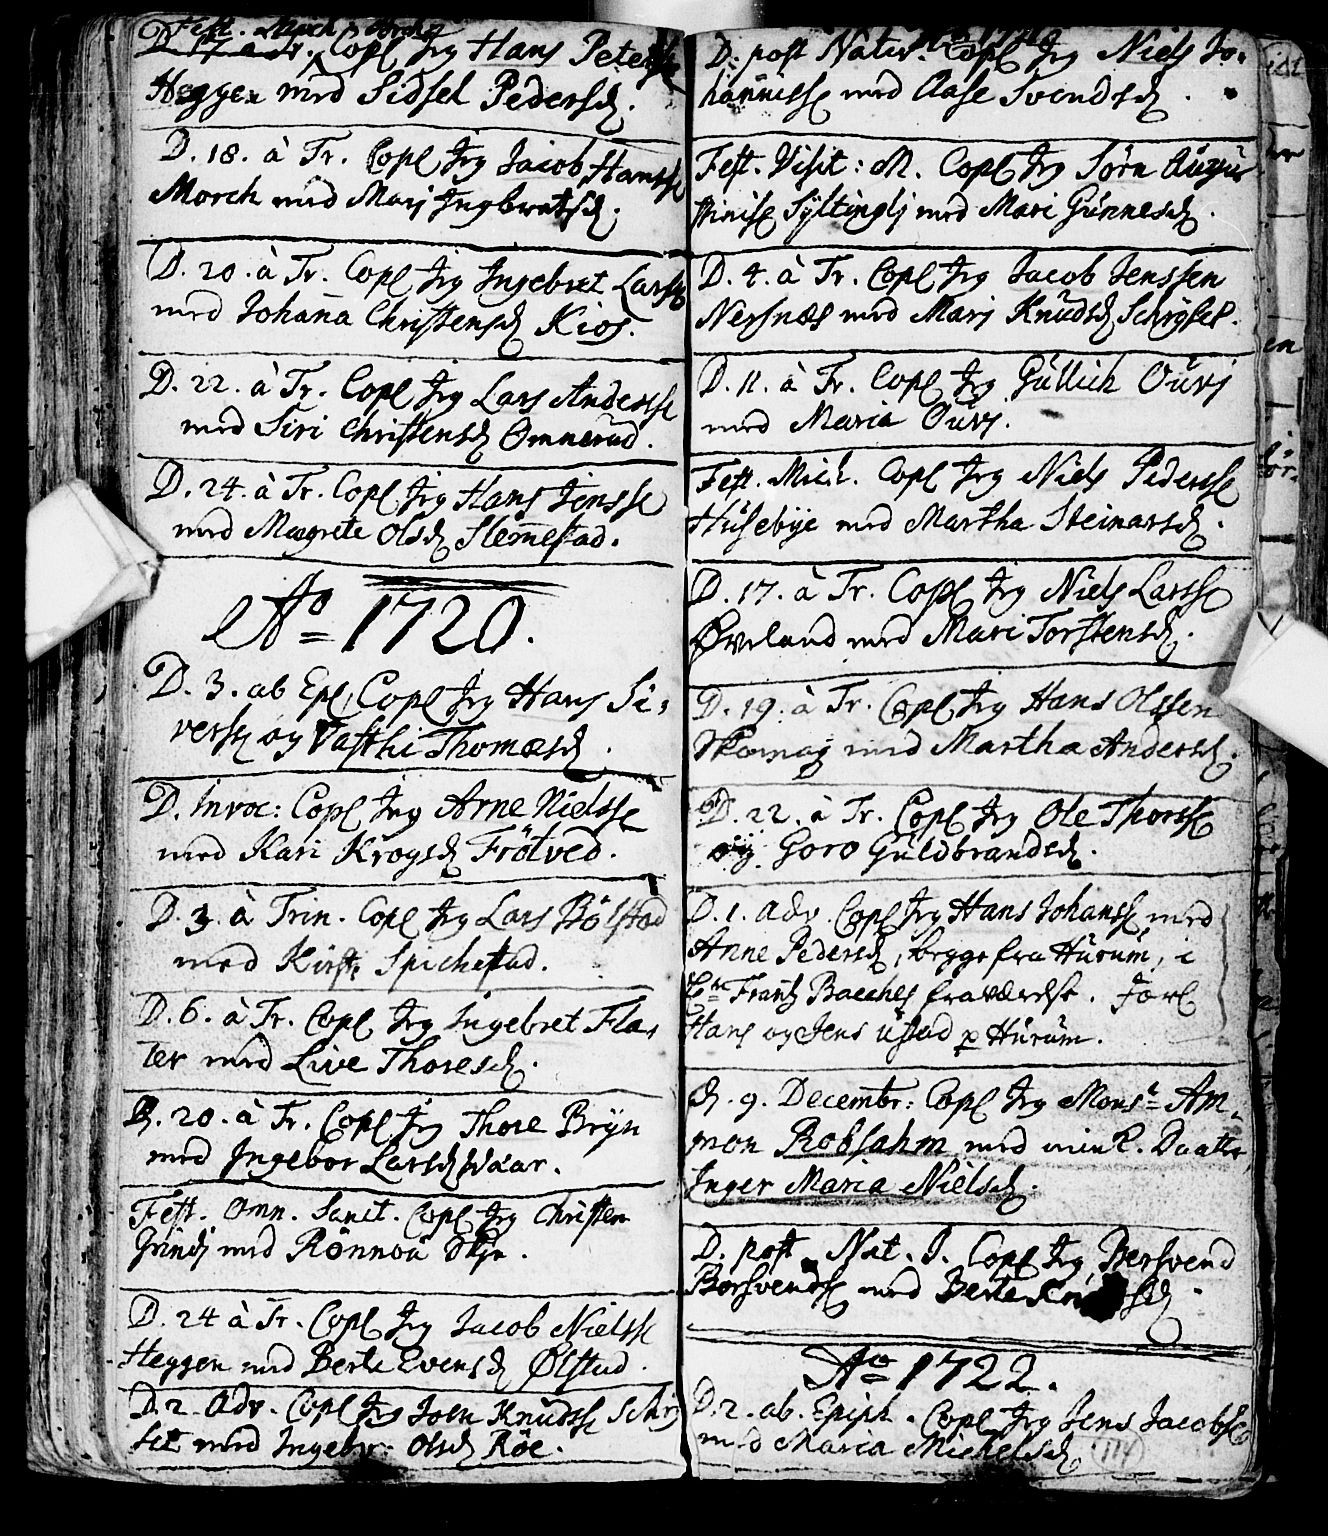 D. 17 à Tr. Copl Jeg Hans Peters
Heggen med Sidsel Pedersd.
D. 18. à Tr. Copl Jeg Jacob Hanss
Morch med Marj Ingbretsd.
D. 20. à Tr. Copl Jeg Ingebret Larss
med Johanna Christensd Kios.
D. 22. à Tr. Copl Jeg Lars Anderss
med Siri Christensd Omnerud.
D. 24. à Tr. Copl Jeg Hans Jenss
med Magrete Olsd Slemestad.
Ao 1720.
D. 3. ab Epi, Copl Jeg Hans Si-
verss og Vasthi Thomasd.
D. Invoc: Copl Jeg Arne Nielss
med Kari Krogsd Frötved.
D. 3. à Trin. Copl Jeg Lars Bölstad
med Kirst. Spichestad.
D. 6. à Tr. Copl Jeg Ingebret Fla-
ter med Live Thoresd.
D. 20. à Tr. Copl Jeg Thore Brÿn
med Ingebor Larsd Waar.
Fest. Omn. Sanct. Copl Jeg Christen
med Rönnou
D. 24 à Tr. Copl Jeg Jacob Nielss
Heggen med Berte Evensd Ölstad.
D. 2. Adv. Copl Jeg Joen Knudss Schiö
set med Ingebr: Olsd Röe.
D. post Nativ. Copl Jeg Niels Jo-
hanniss med Aase Svendsd.
Fest. Visit: M. Copl Jeg Sörn Augu
stinss Syltingli med Mari Gunnesd.
D. 4. à Tr. Copl Jeg Jacob Jenssen
Nersnæs med Marj Knudsd Schiöset.
D. 11. à Tr. Copl Jeg Gullich Ourj
med Maria Ourj.
Fest. Mich. Copl Jeg Niels Pederss
Husebÿe med Martha Steinarsd.
D. 17. à Tr. Copl Jeg Niels Larss
Öveland med Mari Torstensd.
D. 19. à Tr. Copl Jeg Hans Olssen
med Martha Andersd.
D. 22. à Tr. Copl Jeg Ole Thorss
og Goro Guldbrandsd.
D. 1. Adv. Copl Jeg Hans Johanss med
Anne Pedersd, begge fra Hurum, i
Hr Frantz Bacches fraværelse. Forl
Hans og Jens Ustad p Hurum.
D. 9. Decembr: Copl Jeg Monsr Am-
mon Robsahm med min k. Daatter
Inger Maria Nielsd.
D. post Nat. D. Copl Jeg Bersvend
Borsvends med Berte
Ao 1722.
D. 2. ab. Epiph. Copl Jeg Jens Jacobss
med Maria Michelsd.
114